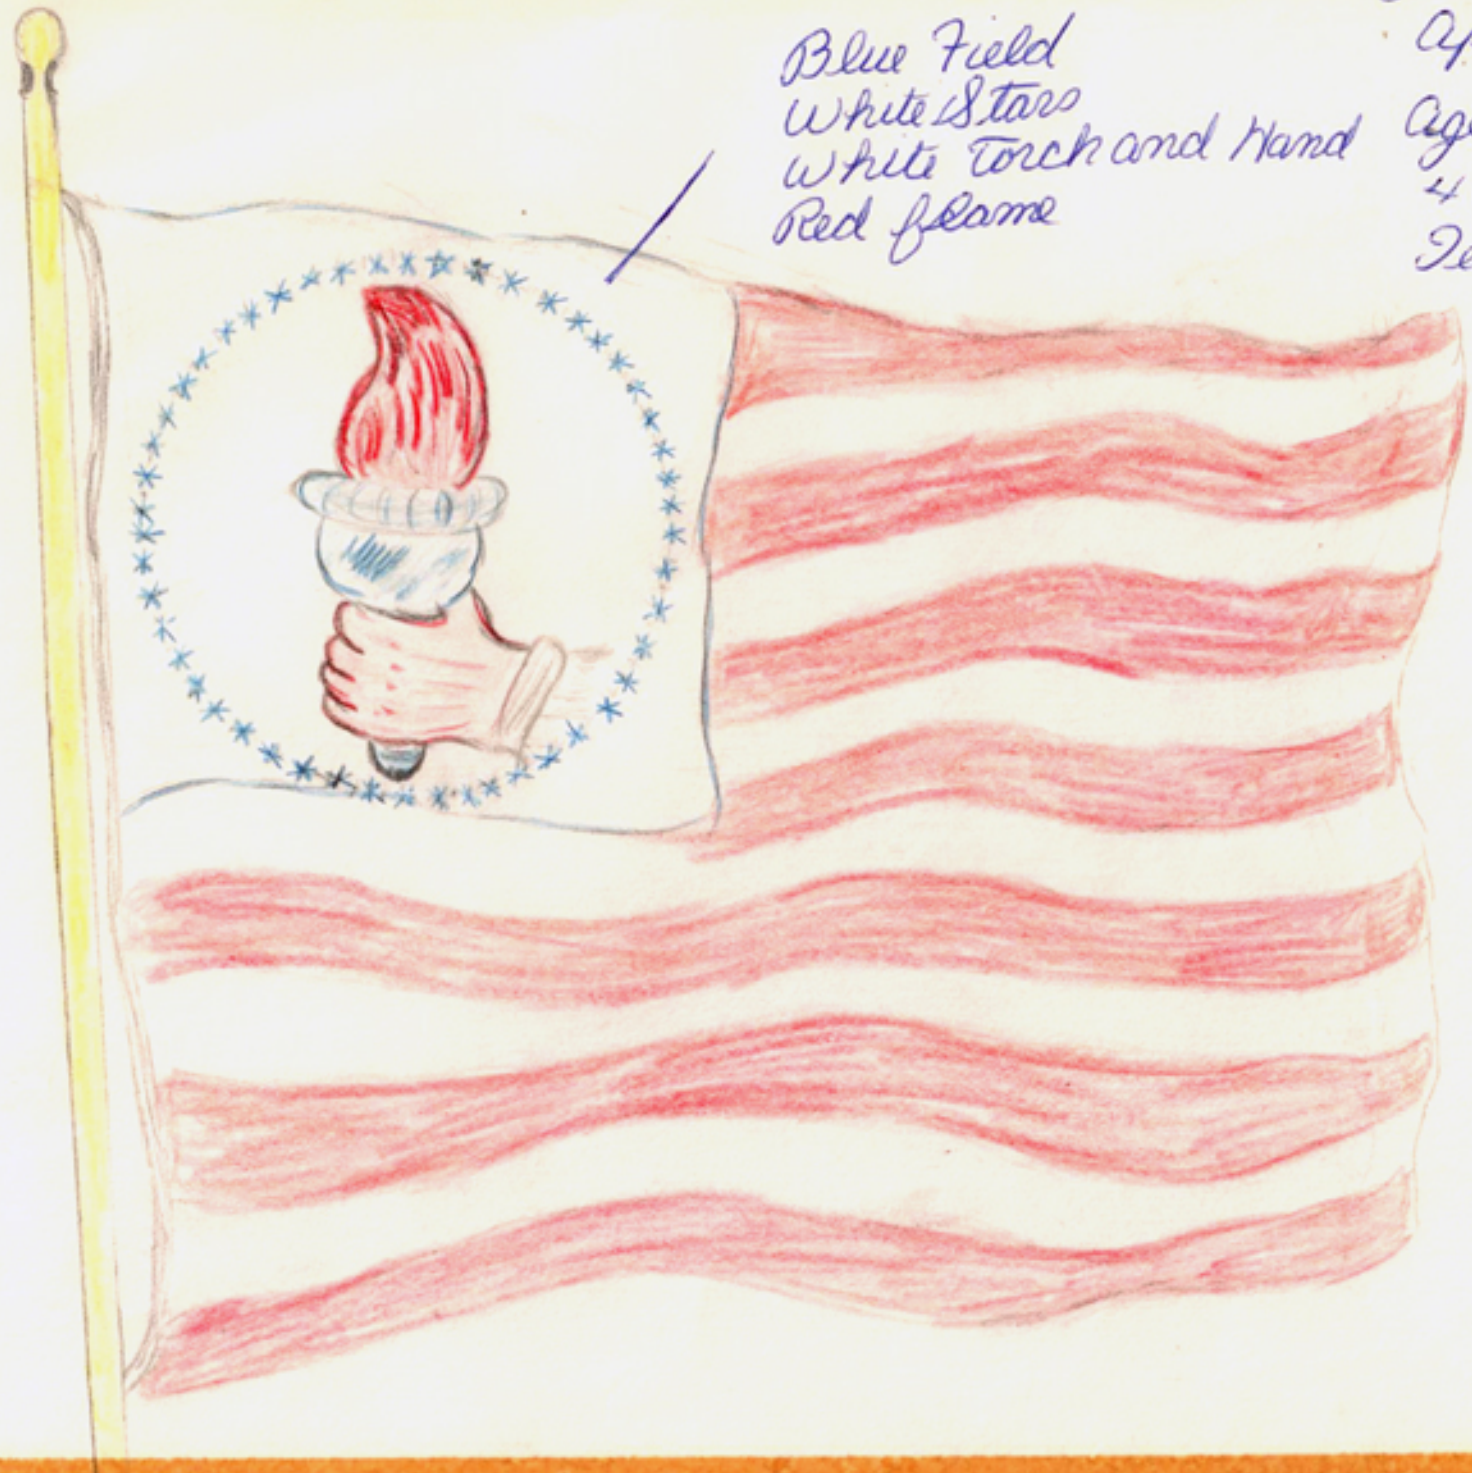 Blue Field
White Stars
White Torch and Hand
Red flame
4